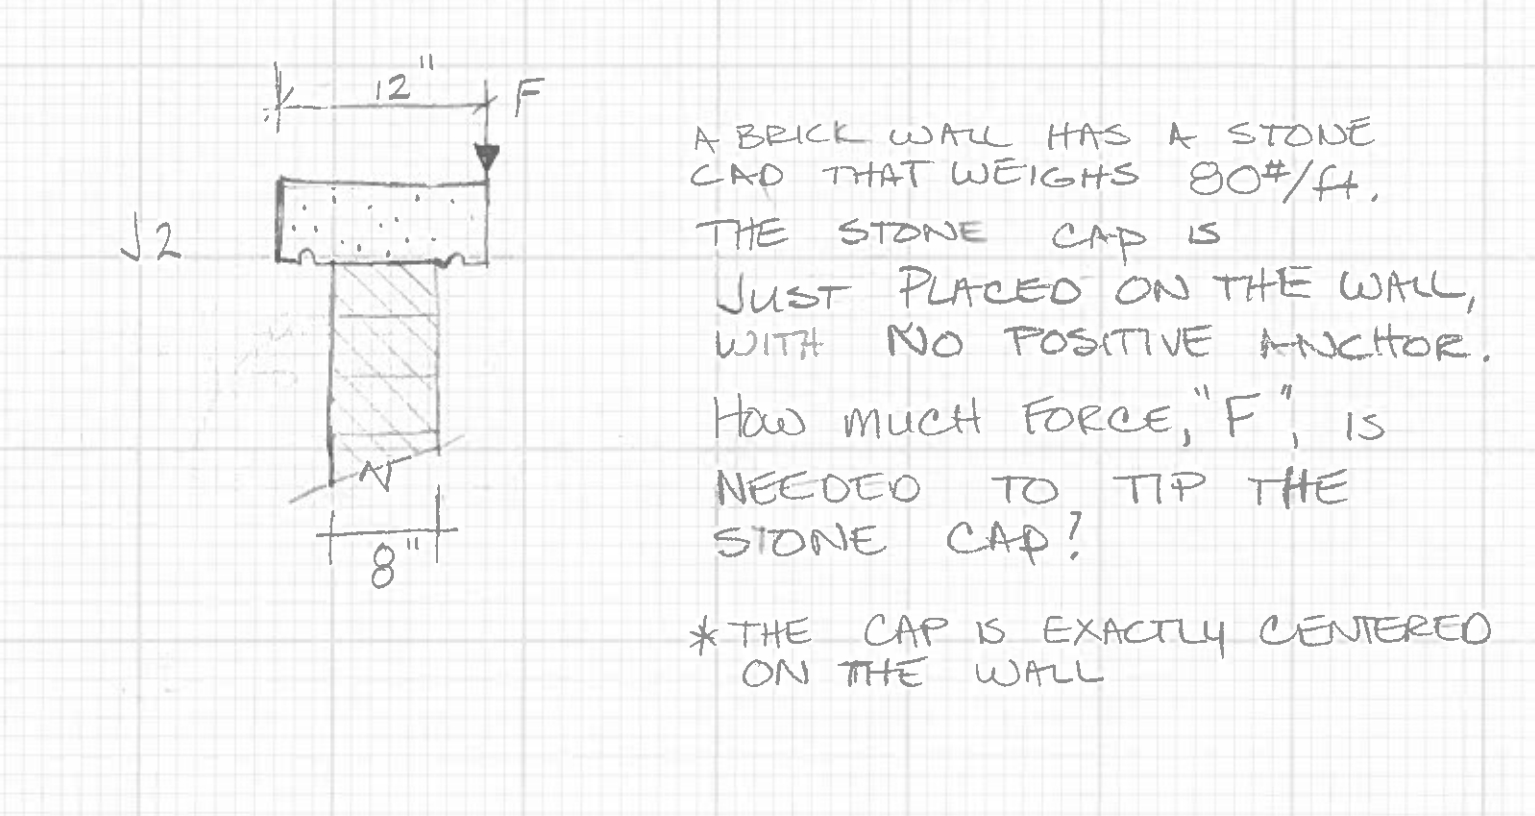 12"
F
J2
8"
A BRICK WALL HAS A STONE
CAP THAT WEIGHS 80#/ft.
THE STONE CAP IS
JUST PLACED ON THE WALL,
WITH NO POSITIVE ANCHOR.
HOW MUCH FORCE, "F", IS
NEEDED TO TIP THE
STONE CAP?
* THE CAP IS EXACTLY CENTERED
ON THE WALL